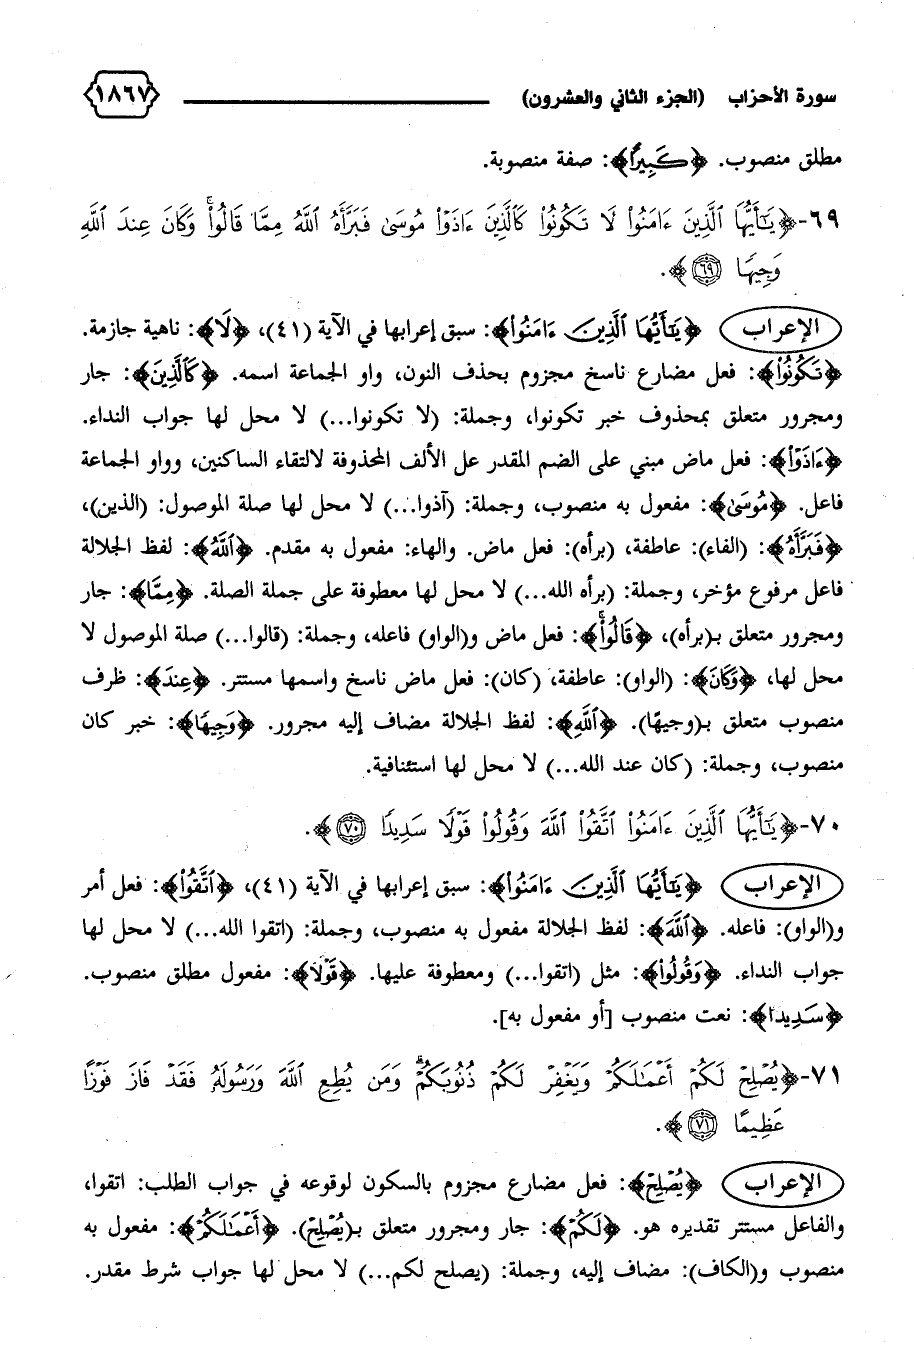 سورة الأحزاب (الجزء الثاني والعشرون) ١٨٦٧
مطلق منصوب. ﴿كَبِيرًا﴾: صفة منصوبة.
٦٩-﴿يَٰٓأَيُّهَا ٱلَّذِينَ ءَامَنُوا۟ لَا تَكُونُوا۟ كَٱلَّذِينَ ءَاذَوْا۟ مُوسَىٰ فَبَرَّأَهُ ٱللَّهُ مِمَّا قَالُوا۟ ۚ وَكَانَ عِندَ ٱللَّهِ
وَجِيهًا ٦٩﴾.
الإعراب ﴿يَٰٓأَيُّهَا ٱلَّذِينَ ءَامَنُوا۟﴾: سبق إعرابها في الآية (٤١)، ﴿لَا﴾: ناهية جازمة.
﴿تَكُونُوا۟﴾: فعل مضارع ناسخ مجزوم بحذف النون، واو الجماعة اسمه. ﴿كَٱلَّذِينَ﴾: جار
ومجرور متعلق بمحذوف خبر تكونوا، وجملة: (لا تكونوا...) لا محل لها جواب النداء.
﴿ءَاذَوْا۟﴾: فعل ماض مبني على الضم المقدر عل الألف المحذوفة لالتقاء الساكنين، وواو الجماعة
فاعل. ﴿مُوسَىٰ﴾: مفعول به منصوب، وجملة: (آذوا...) لا محل لها صلة الموصول: (الذين)،
﴿فَبَرَّأَهُ﴾: (الفاء): عاطفة، (برأه): فعل ماض. والهاء: مفعول به مقدم. ﴿ٱللَّهُ﴾: لفظ الجلالة
فاعل مرفوع مؤخر، وجملة: (برأه الله...) لا محل لها معطوفة على جملة الصلة. ﴿مِمَّا﴾: جار
ومجرور متعلق بـ(برأه)، ﴿قَالُوا۟ ۚ﴾: فعل ماض و(الواو) فاعله، وجملة: (قالوا...) صلة الموصول لا
محل لها، ﴿وَكَانَ﴾: (الواو): عاطفة، (كان): فعل ماض ناسخ واسمها مستتر. ﴿عِندَ﴾: ظرف
منصوب متعلق بـ(وجيهًا). ﴿ٱللَّهِ﴾: لفظ الجلالة مضاف إليه مجرور. ﴿وَجِيهًا﴾: خبر كان
منصوب، وجملة: (كان عند الله...) لا محل لها استئنافية.
٧٠-﴿يَٰٓأَيُّهَا ٱلَّذِينَ ءَامَنُوا۟ ٱتَّقُوا۟ ٱللَّهَ وَقُولُوا۟ قَوْلًا سَدِيدًا ٧٠﴾.
الإعراب ﴿يَٰٓأَيُّهَا ٱلَّذِينَ ءَامَنُوا۟﴾: سبق إعرابها في الآية (٤١)، ﴿ٱتَّقُوا۟﴾: فعل أمر
و(الواو): فاعله. ﴿ٱللَّهَ﴾: لفظ الجلالة مفعول به منصوب، وجملة: (اتقوا الله...) لا محل لها
جواب النداء. ﴿وَقُولُوا۟﴾: مثل (اتقوا...) ومعطوفة عليها. ﴿قَوْلًا﴾: مفعول مطلق منصوب.
﴿سَدِيدًا﴾: نعت منصوب [أو مفعول به].
٧١-﴿يُصْلِحْ لَكُمْ أَعْمَٰلَكُمْ وَيَغْفِرْ لَكُمْ ذُنُوبَكُمْ ۗ وَمَن يُطِعِ ٱللَّهَ وَرَسُولَهُۥ فَقَدْ فَازَ فَوْزًا
عَظِيمًا ٧١﴾.
الإعراب ﴿يُصْلِحْ﴾: فعل مضارع مجزوم بالسكون لوقوعه في جواب الطلب: اتقوا،
والفاعل مستتر تقديره هو. ﴿لَكُمْ﴾: جار ومجرور متعلق بـ(يُصْلِحْ). ﴿أَعْمَٰلَكُمْ﴾: مفعول به
منصوب و(الكاف): مضاف إليه، وجملة: (يصلح لكم...) لا محل لها جواب شرط مقدر.